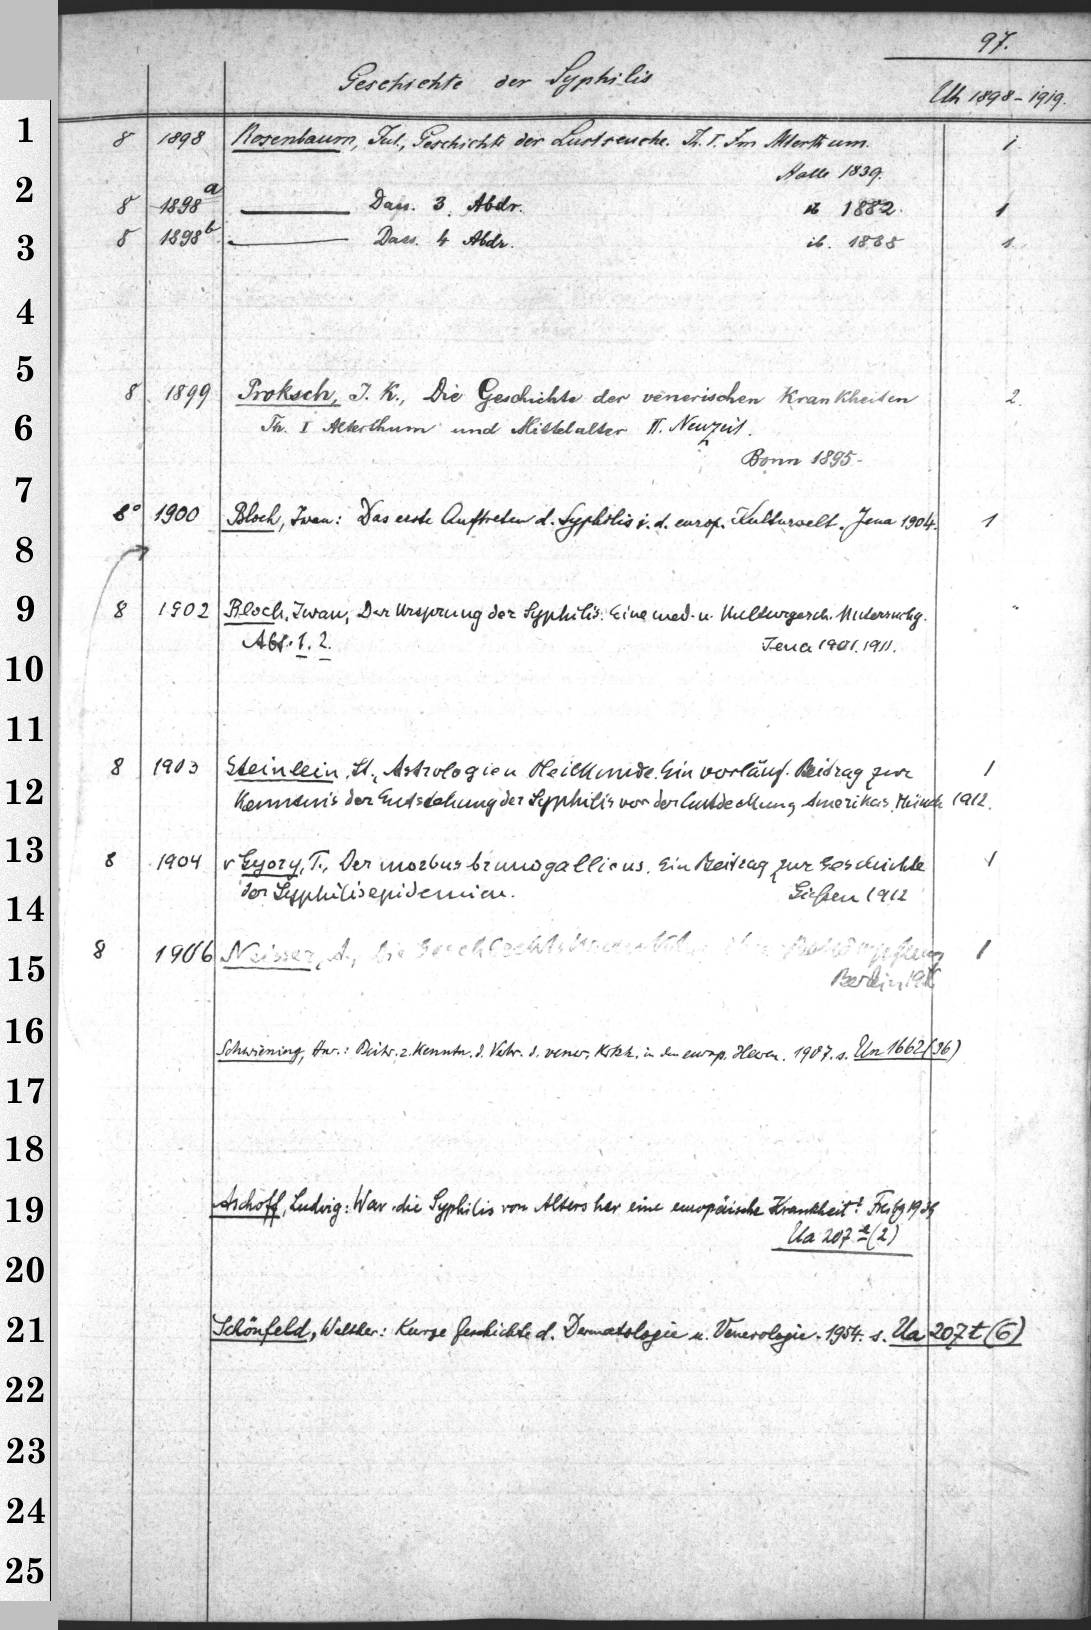 97.
Geschichte der Syphilis
Uh 1898-1919.
1
8 1898 Rosenbaum, Jul., Geschichte der Lustseuche. Th. I. Im Alterthum. 1
Halle 1839.
2
8 1898a ——— Dass. 3. Abdr. ib 1882. 1
3
8 1898b ——— Dass. 4 Abdr. ib. 1888 1.
4
5
8 1899 Proksch, J. K., Die Geschichte der venerischen Krankheiten 2.
6
Th. I Alterthum und Mittelalter II. Neuzeit.
Bonn 1895-
7
8° 1900 Bloch, Iwan: Das erste Auftreten d. Syphilis i. d. europ. Kulturwelt. Jena 1904. 1
8
9
8 1902 Bloch, Iwan, Der Ursprung der Syphilis. Eine med. u. Kulturgesch. Untersuchg.
Abt. 1. 2. Jena 1901. 1911.
10
11
8 1903 Steinlein, St., Astrologien Heilkunde. Ein vorläuf. Beitrag zur 1
12
Kenntnis der Entstehung der Syphilis vor der Entdeckung Amerikas. Münch 1912.
13
8 1904 v Gyory, T., Der morbus brunogallicus. Ein Beitrag zur Geschichte 1
der Syphilisepidemien. Gießen 1912
14
8 1906 Neisser, A., Die Geschlechtskrankheiten Bekämpfung 1
15
Berlin
16
Schwiening, Hnr.: Beitr. z. Kenntn. d. Vbr. d. vener. Krkh. in den europ. Heeren. 1907. s. Un 1662(36)
17
18
19
Aschoff, Ludwig: War die Syphilis von Alters her eine europäische Krankheit?
Ua 207 (2)
20
21
Schönfeld, Walther: Kurze Geschichte d. Dermatologie u. Venerologie. 1954. s. Ua 207t(6)
22
23
24
25